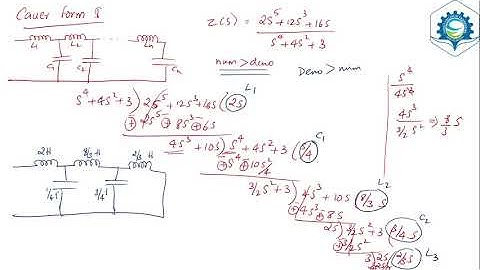 Cauer form I
L1 L2 Ln
C1 C2 Cn
Z(s) = 2s^5 + 12s^3 + 16s
s^4 + 4s^2 + 3
num > deno Deno > num
s^4 + 4s^2 + 3 ) 2s^5 + 12s^3 + 16s ( 2s L1
2s^5 8s^3 6s
4s^3 + 10s ) s^4 + 4s^2 + 3 ( s/4 C1
s^4 10s^2/4
3/2 s^2 + 3 ) 4s^3 + 10s ( 8/3 s L2
4s^3 8s
2s ) 3/2 s^2 + 3 ( 3/4 s C2
3/2 s^2
3 ) 2s ( 2/3 s L3
2s
s^4
4s^3
4s^3
3/2 s^2 ⇒ 8/3 s
2H 8/3 H 2/3 H
1/4 f 3/4 f